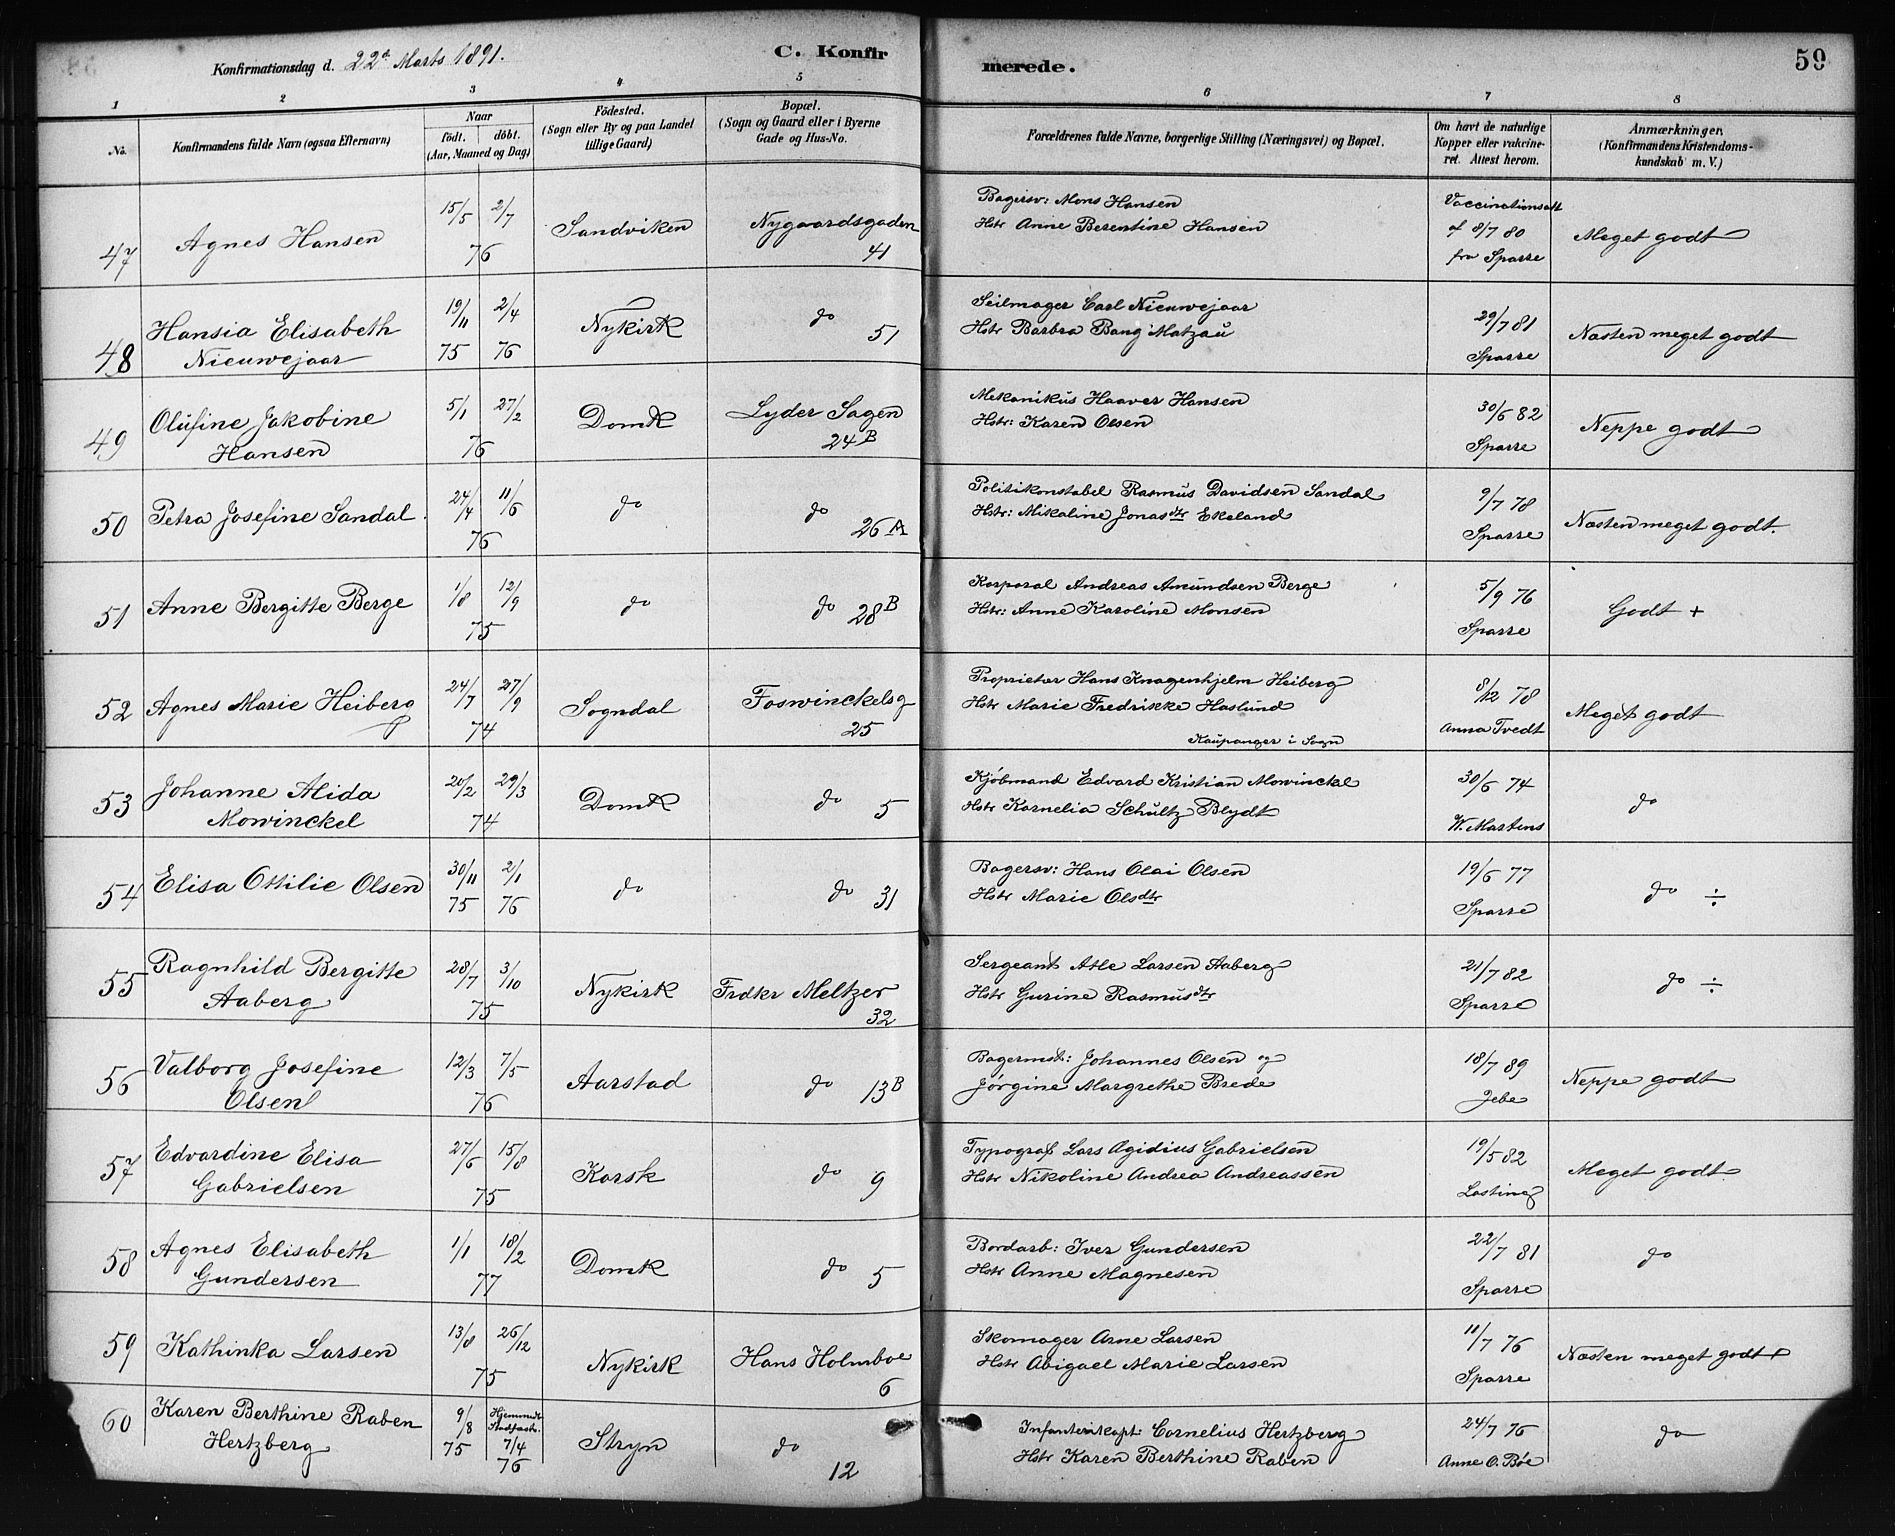 Konfirmationsdag d. 22de Marts 1891.
C. Konfirmerede.
59
1 2 3 4 5 6 7 8
No. Konfirmandens fulde Navn (ogsaa Efternavn) Naar födt. döbt. (Aar, Maaned og Dag) Födested. (Sogn eller By og paa Landet tillige Gaard) Bopæl. (Sogn og Gaard eller i Byerne Gade og Hus-No. Forældrenes fulde Navne, borgerlige Stilling (Næringsvei) og Bopæl. Om havt de naturlige Kopper eller vakcineret. Attest herom. Anmærkninger. (Konfirmandens Kristendomskundskab m. V.)
47 Agnes Hansen 15/5 2/7 76 Sandviken Nygaardsgaden 41
Bagersv: Mons Hansen
Hstr Anne Berentine Hansen
Vaccinationsatt
af 8/7 80
fra Sparre
Meget godt
48 Hansia Elisabeth
Nieuwejaar
19/11 75 2/4 76 Nykirk do 51
Seilmager Carl Nieuwejaar
Hstr Barbra Bang Matzau
29/7 81
Sparre
Næsten meget godt
49 Olufine Jakobine
Hansen
5/1 27/2 76 Domk Lyder Sagen 24 B
Mekanikus Haaver Hansen
Hstr: Karen Olsen
30/6 82
Sparre
Neppe godt
50 Petra Josefine Sandal 24/4 11/6 76 do do 26 A
Politikonstabel Rasmus Davidsen Sandal
Hstr: Mikaline Jonasdtr Ekeland
9/7 78
Sparre
Næsten meget godt.
51 Anne Bergitte Berge 1/8 12/9 75 do do 28 B
Korporal Andreas Amundsen Berge
Hstr: Anne Karoline Monsen
5/9 76
Sparre
Godt +
52 Agnes Marie Heiberg 24/7 27/9 74 Sogndal Foswinckelsg 25
Proprietær Hans Knagenhjelm Heiberg
Hstr Marie Fredrikke Haslund
Kaupanger i Sogn
8/12 78
Anna Tvedt
Meget godt
53 Johanne Alida
Mowinckel
20/2 29/3 74 Domk do 5
Kjöbmand Edvard Kristian Mowinckel
Hstr Kornelia Schultz Blydt
30/6 74
W. Martens
do
54 Elisa Ottilie Olsen 30/11 75 2/1 76 do do 31
Bagersv: Hans Olai Olsen
Hstr Marie Olsdtr
19/6 77
Sparre
do ÷
55 Ragnhild Bergitte
Aaberg
28/7 3/10 75 Nykirk Frdkr Meltzer 32
Sergeant Atle Larsen Aaberg
Hstr Gurine Rasmusdtr
21/7 82
Sparre
do ÷
56 Valborg Josefine
Olsen
12/3 7/5 76 Aarstad do 13 B
Bagermst: Johannes Olsen og
Jörgine Margrethe Brede
18/7 89
Jebe
Neppe godt
57 Edvardine Elisa
Gabrielsen
27/6 15/8 75 Korsk do 9
Typograf Lars Agidius Gabrielsen
Hstr Nikoline Andrea Andreassen
19/5 82
Meget godt
58 Agnes Elisabeth
Gundersen
1/1 18/2 77 Domk do 5
Bordarb: Iver Gundersen
Hstr Anne Magnesen
22/7 81
Sparre
do
59 Kathinka Larsen 13/8 26/12 75 Nykirk Hans Holmboe 6
Skomager Arne Larsen
Hstr Abigael Marie Larsen
11/7 76
Sparre
Næsten meget godt +
60 Karen Berthine Raben
Hertzberg
9/8 75 Hjemmedt 7/4 76 Stryn do 12
Infanterikapt: Cornelius Hertzberg
Hstr Karen Berthine Raben
24/7 76
Anne O. Böe
do